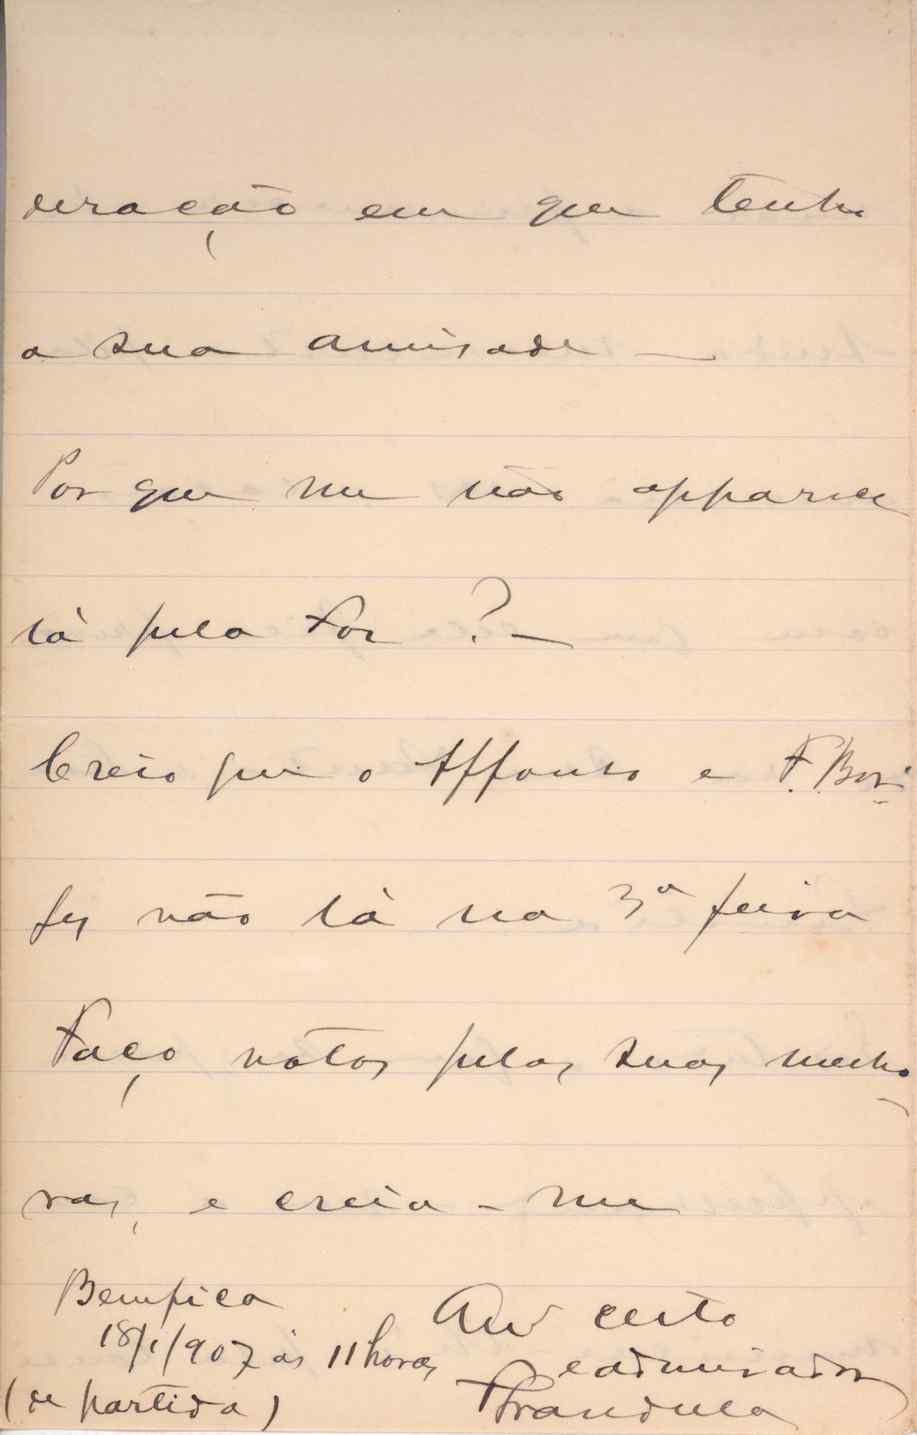 deração em que tenho
a sua amisade —
Por que me não apparece
lá pela Foz ? —
Creio que o Affonso e F. Bor-
ges vão lá na 3ª feira
Faço votos pelas suas melho-
ras, e creia-me
Bemfica
18/1/907 ás 11 horas
(de partida)
Amº certo
e admirador
Prandula